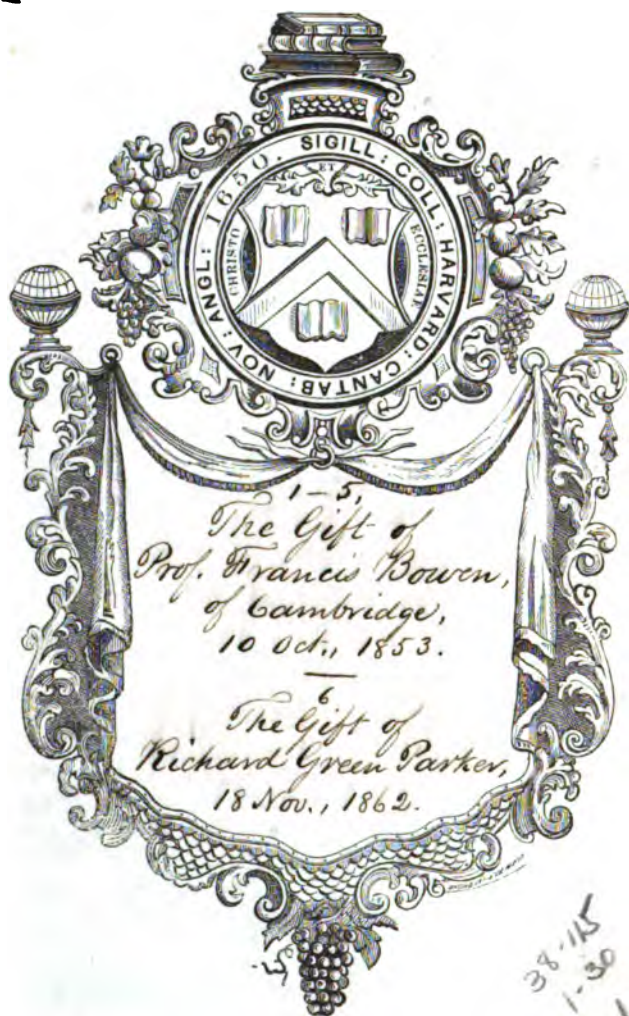 SIGILL: COLL: HARVARD: CANTAB: NOV: ANGL: 1650.
ET
CHRISTO
ECCLESIAE
1–5,
The Gift of
Prof. Francis Bowen,
of Cambridge,
10 Oct., 1853.
6
The Gift of
Richard Green Parker,
18 Nov., 1862.
38-115
1-30
1